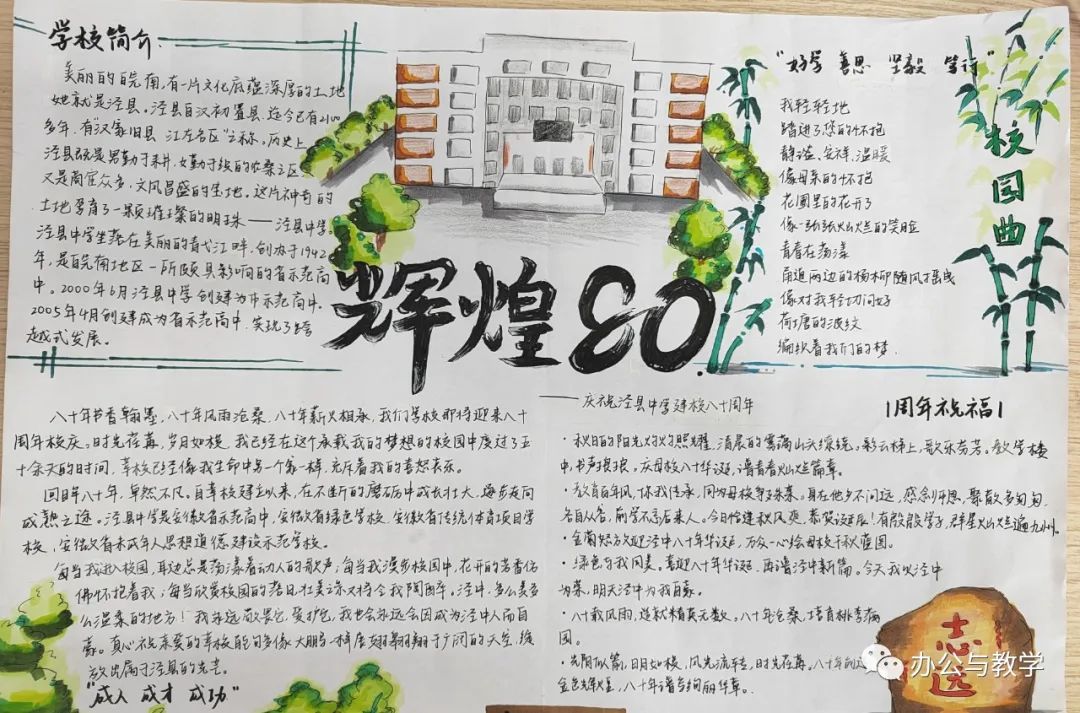 学校简介
美丽的皖南，有一片文化底蕴深厚的土地
她就是泾县。泾县自汉初置县，迄今已有2100
多年，有"汉家旧县 江左名区"之称。历史上
泾县既是男勤于耕，女勤于织的农桑之区
又是商贾众多，文风昌盛的圣地。这片神奇的
土地孕育了一颗璀璨的明珠——泾县中学。
泾县中学坐落在美丽的青弋江畔，创办于1942
年，是皖南地区一所颇具影响的省示范高
中。2000年6月泾县中学创建为市示范高中。
2005年4月创建成为省示范高中，实现了跨
越式发展。
辉煌80.
——庆祝泾县中学建校八十周年
"好学 善思 坚毅 笃行"
校园曲
我轻轻地
踏进了您的怀抱
静谧、安祥、温暖
像母亲的怀抱
花圃里的花开了
像一张张灿烂的笑脸
青春在荡漾
甬道两边的杨柳随风摇曳
像对我轻切问好
荷塘的波纹
编织着我们的梦.
八十年书香翰墨，八十年风雨沧桑，八十年薪火相承，我们学校即将迎来八十
周年校庆。时光荏苒，岁月如梭，我已经在这个承载我的梦想的校园中度过了五
十余天的时间，母校已经像我生命中另一个第一样，充斥着我的喜怒哀乐。
回眸八十年，卓然不凡。自母校建立以来，在不断的磨砺中成长壮大，逐步走向
成熟之途。泾县中学是安徽省示范高中，安徽省绿色学校，安徽省传统体育项目学
校，安徽省未成年人思想道德建设示范学校。
每当我进入校园，耳边总是荡漾着动人的歌声；每当我漫步校园中，花开的芳香仿
佛怀抱着我；每当欣赏校园的落日，壮美诗又将令我陶醉。泾中，多么美多
么温柔的地方！我永远敬畏它，爱护它，我也会永远会因成为泾中人而自
豪。真心祝亲爱的母校能够像大鹏一样展翅翱翔于广阔的天空，绽
放出属于泾县的光芒。
"成人 成才 成功"
周年祝福
·秋日的阳光灼灼照耀，清晨的雾霭山头缭绕。彩云梯上，歌乐芬芳。教学楼
中，书声琅琅。庆母校八十华诞，谱青春灿烂篇章。
·教育百年风，你我传承，同为母校争珠荣。身在他乡不问远，感念师恩，聚散多匆匆，
各自从容，前学不忘后来人。今日恰逢秋风爽，恭贺诞辰！有殷殷学子，群星灿烂遍九州。
·金菊绽放迎泾中八十年华诞，万众一心绘母校千秋蓝图。
·绿色的我风美，喜迎八十年华诞，再谱泾中新篇。今天我以泾中
为荣，明天泾中为我自豪。
·八十载风雨，造就精英无数。八十年沧桑，培育桃李满
园。
·光阴似箭，日月如梭，风光流转，时光荏苒。八十年创造
金色辉煌，八十年谱写绚丽华章.
志远
办公与教学